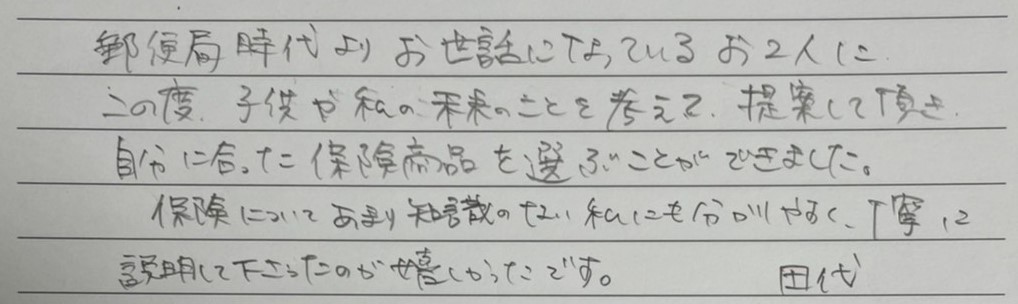 郵便局時代よりお世話になっているお2人に
この度、子供や私の未来のことを考えて、提案して頂き、
自分に合った保険商品を選ぶことができました。
保険についてあまり知識のない私にも分かりやすく、丁寧に
説明して下さったのが嬉しかったです。 田代